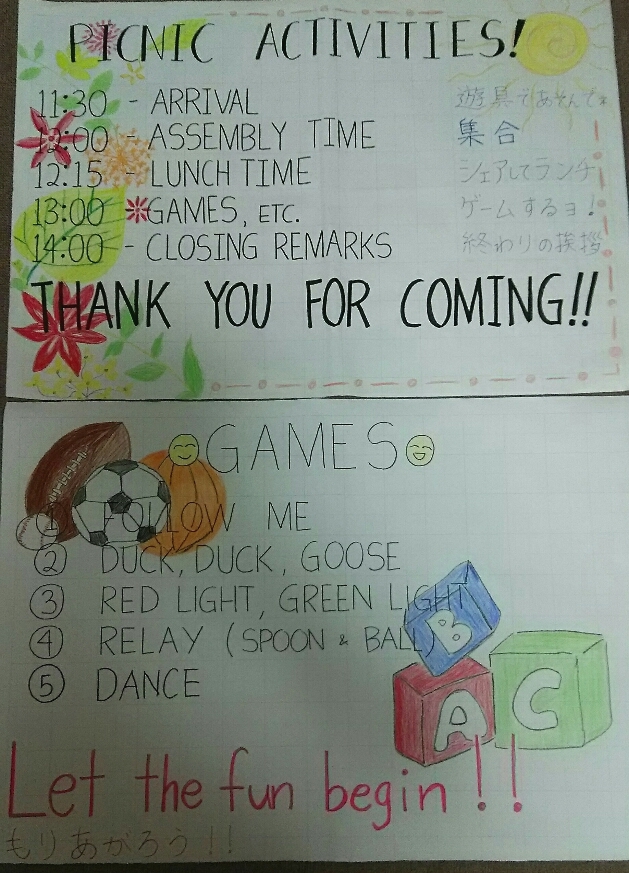 PICNIC ACTIVITIES!
11:30 - ARRIVAL 遊具であそんでネ
12:00 - ASSEMBLY TIME 集合
12:15 - LUNCH TIME シェアしてランチ
13:00 GAMES, ETC. ゲームするヨ!
14:00 - CLOSING REMARKS 終わりの挨拶
THANK YOU FOR COMING!!
GAMES
① FOLLOW ME
② DUCK, DUCK, GOOSE
③ RED LIGHT, GREEN LIGHT
④ RELAY (SPOON & BALL)
⑤ DANCE
B
A C
Let the fun begin!!
もりあがろう!!